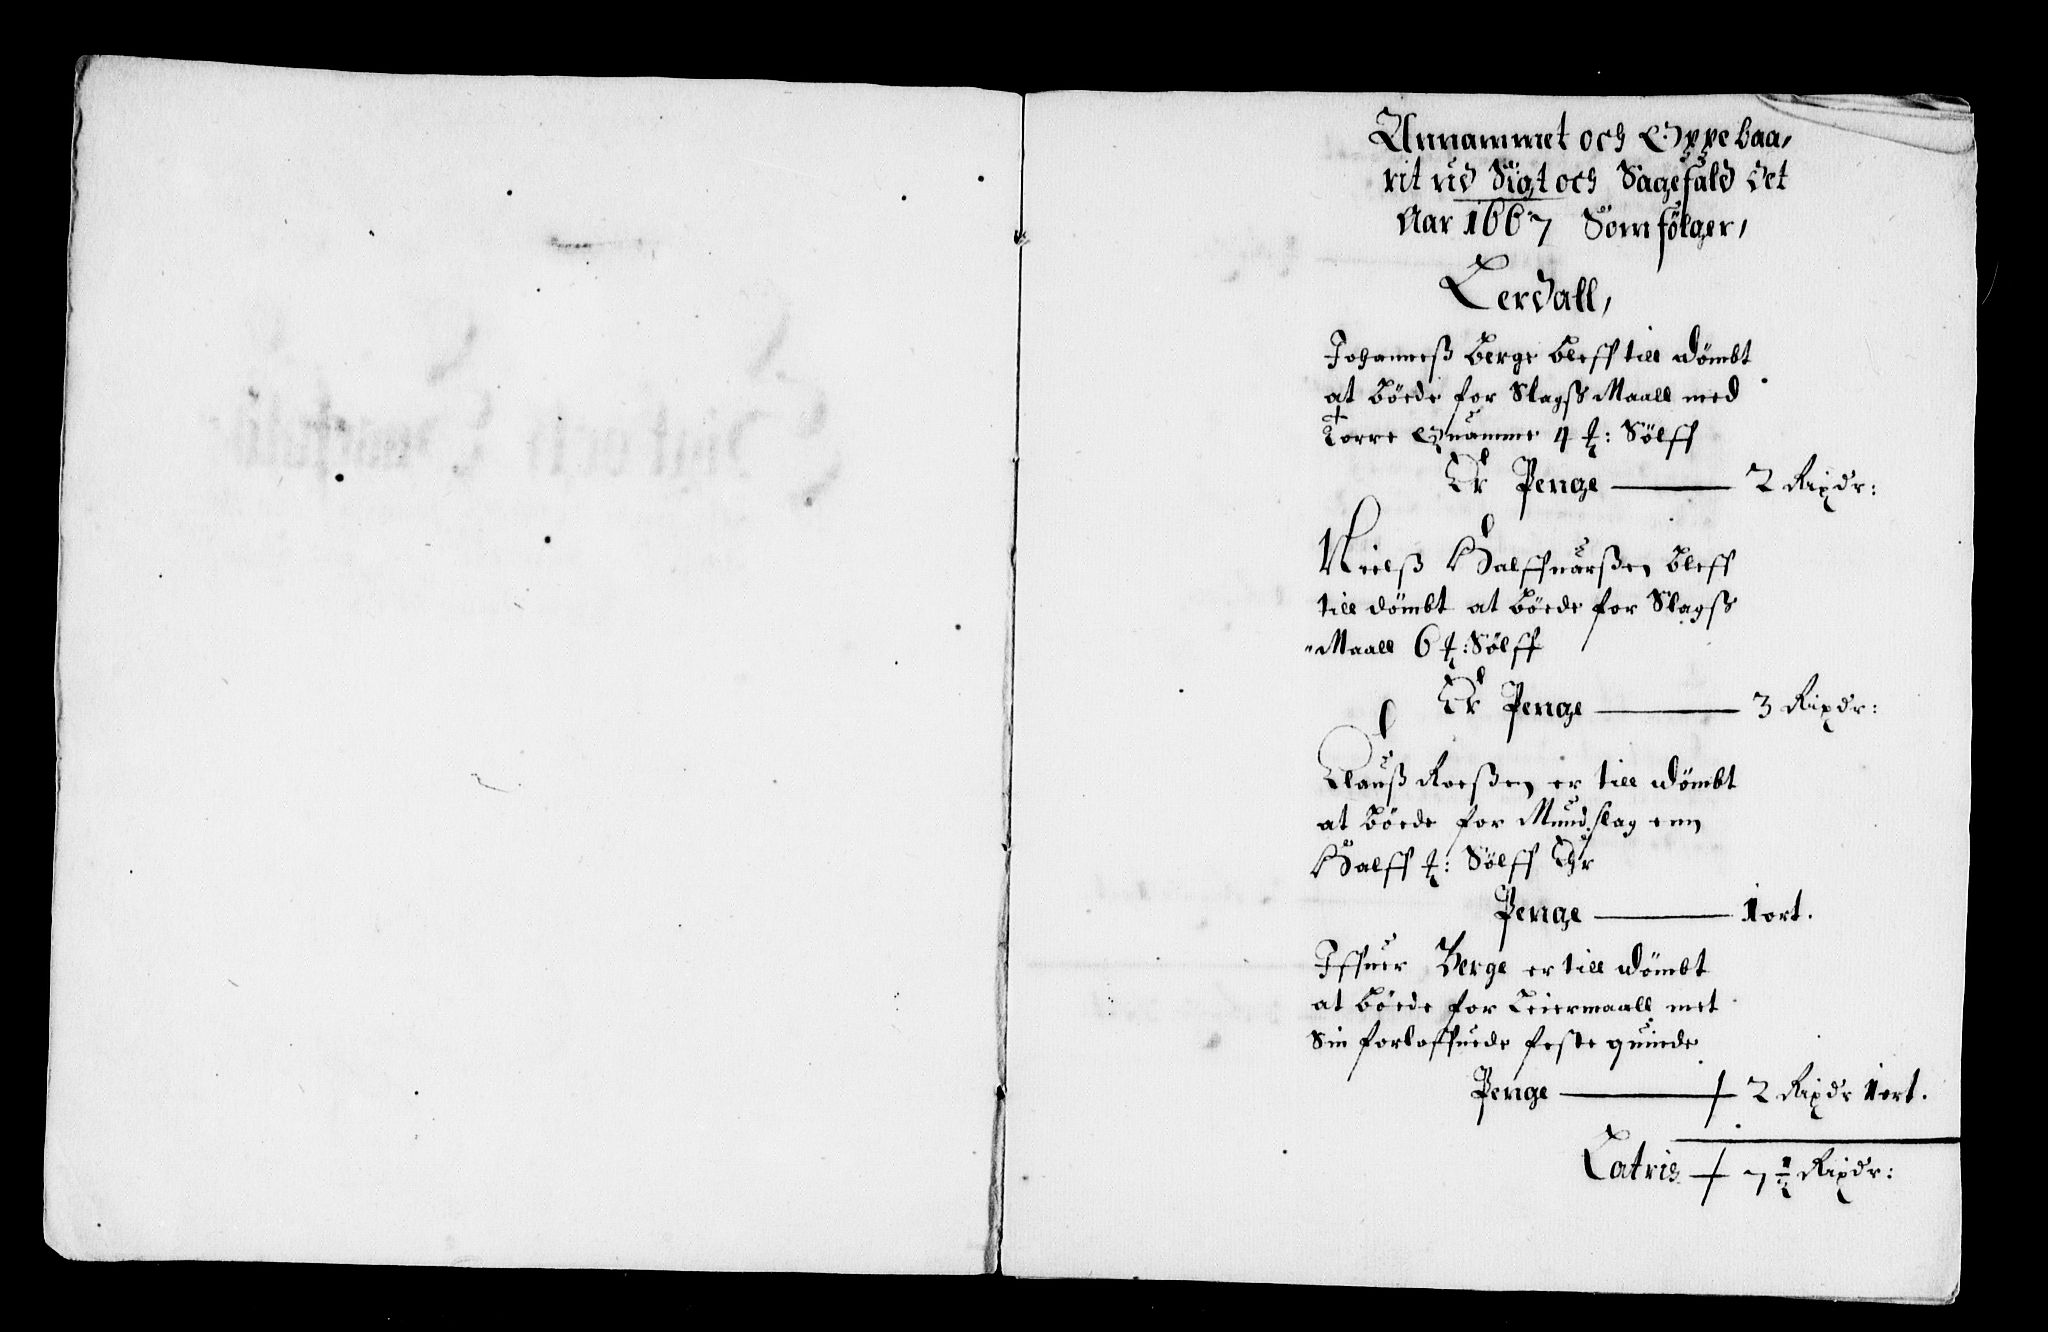 Annammet och Oppebaa,
rit udj Sigt och Sagefald det
Aar 1667 Som følger,
Lerdall,
Johanneß Berge bleff till dømbt
at bøede for Slagss Maall med
Torre Qvamme 4 ℔: Sølff
Er Penge — 2 Rixdr:
Nielß Halffuarßen bleff
till dømbt at bøede for Slagss
Maall 6 ℔: Sølff
Er Penge — 3 Rixdr:
Clauß Roeßen er till dømbt
at bøede for Mundslag enn
Halff ℔: Sølff Er
Penge — 1 ort.
Iffuer Berge er till dømbt
at bøede for Leiermaall met
Sin forloffuede feste quinde
Penge — 2 Rixdr 1 ort.
Latris — 7 1/2 Rixdr: